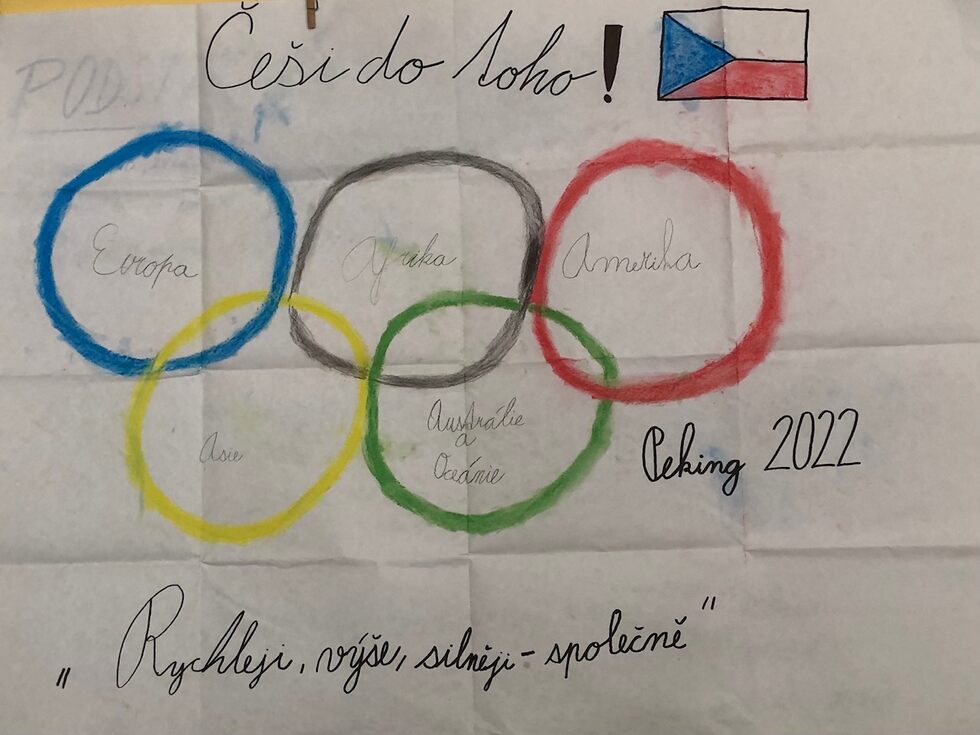 Češi do toho!
Evropa
Afrika
Amerika
Asie
Austrálie
a
Oceánie
Peking 2022
„Rychleji, výše, silněji - společně"